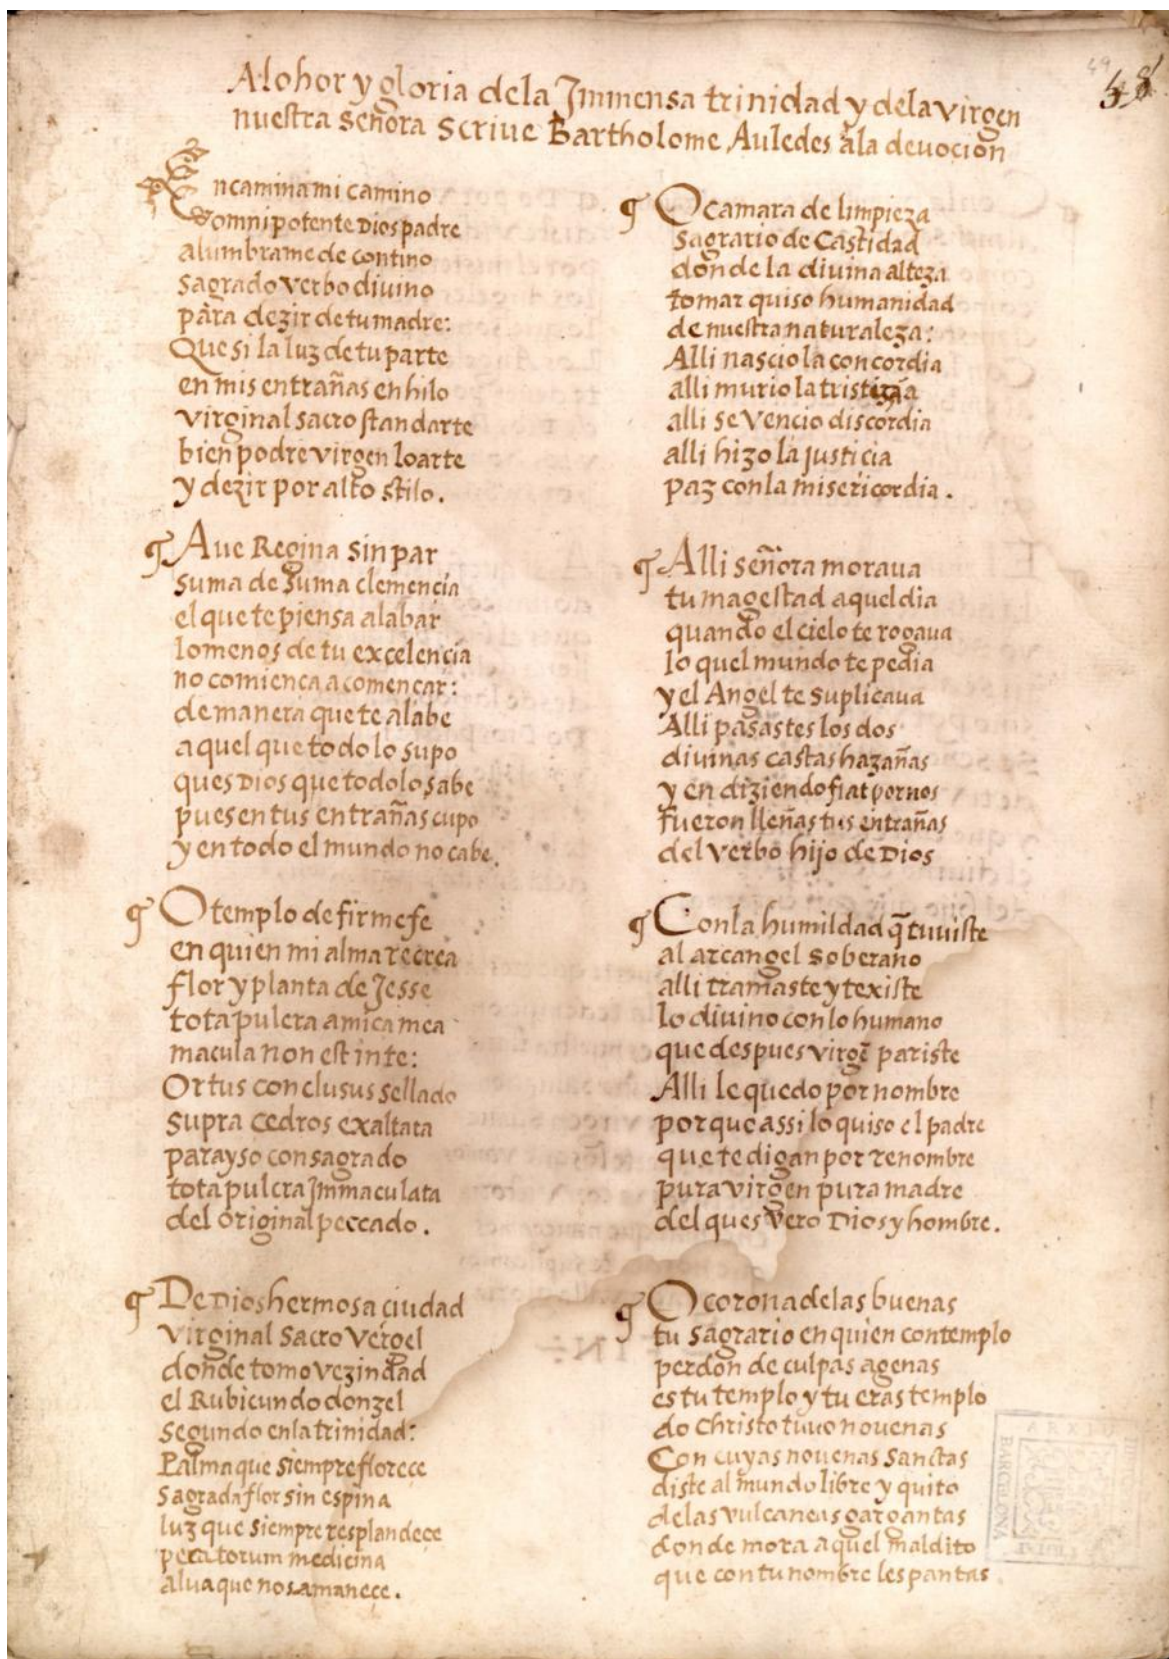 A lohor y gloria dela Jmmensa trinidad y dela virgen
nuestra señora scrive Bartholome Auledes a la devocion
48
Encamina mi camino
omnipotente Dios padre
alumbrame de contino
sagrado verbo divino
para dezir de tu madre:
Que si la luz de tu parte
en mis entrañas enhilo
virginal sacro standarte
bien podre virgen loarte
y dezir por alto stilo.
Aue Regina sin par
suma de suma clemencia
el que te piensa alabar
lo menos de tu excelencia
no comienca a comencar:
de manera que te alabe
aquel que todo lo supo
ques Dios que todo lo sabe
pues en tus entrañas cupo
y en todo el mundo no cabe.
O templo de firme fe
en quien mi alma recrea
flor y planta de Jesse
tota pulcra amica mea
macula non est in te:
Ortus conclusus sellado
supra cedros exaltata
parayso consagrado
tota pulcra Jmmaculata
del original peccado.
De Dios hermosa ciudad
virginal sacro vergel
donde tomo vezindad
el Rubicundo donzel
segundo enla trinidad:
Palma que siempre florece
sagrada flor sin espina
luz que siempre resplandece
pecatorum medicina
alua que nos amanece.
O camara de limpieza
sagrario de Castidad
donde la divina alteza
tomar quiso humanidad
de nuestra naturaleza:
Alli nascio la concordia
alli murio la
alli se vencio discordia
alli hizo la justicia
paz con la misericordia.
Alli señora moraua
tu magestad aquel dia
quando el cielo te rogaua
lo quel mundo te pedia
y el Angel te suplicaua
Alli pasastes los dos
divinas castas hazañas
y en diziendo fiat por nos
fueron lleñas tus entrañas
del verbo hijo de Dios
Con la humildad q̃ tuuiste
al arcangel soberano
alli tramaste y texiste
lo divino con lo humano
que despues virgẽ pariste
Alli le quedo por nombre
porque assi lo quiso el padre
que te digan por renombre
pura virgen pura madre
del ques vero Dios y hombre.
O corona delas buenas
tu sagrario en quien contemplo
perdon de culpas agenas
es tu templo y tu eras templo
do Christo tuuo nouenas
Con cuyas nouenas Sanctas
diste al mundo libre y quito
delas vulcaneas gargantas
donde mora aquel maldito
que con tu nombre lespantas
ARXIU
BARCELONA